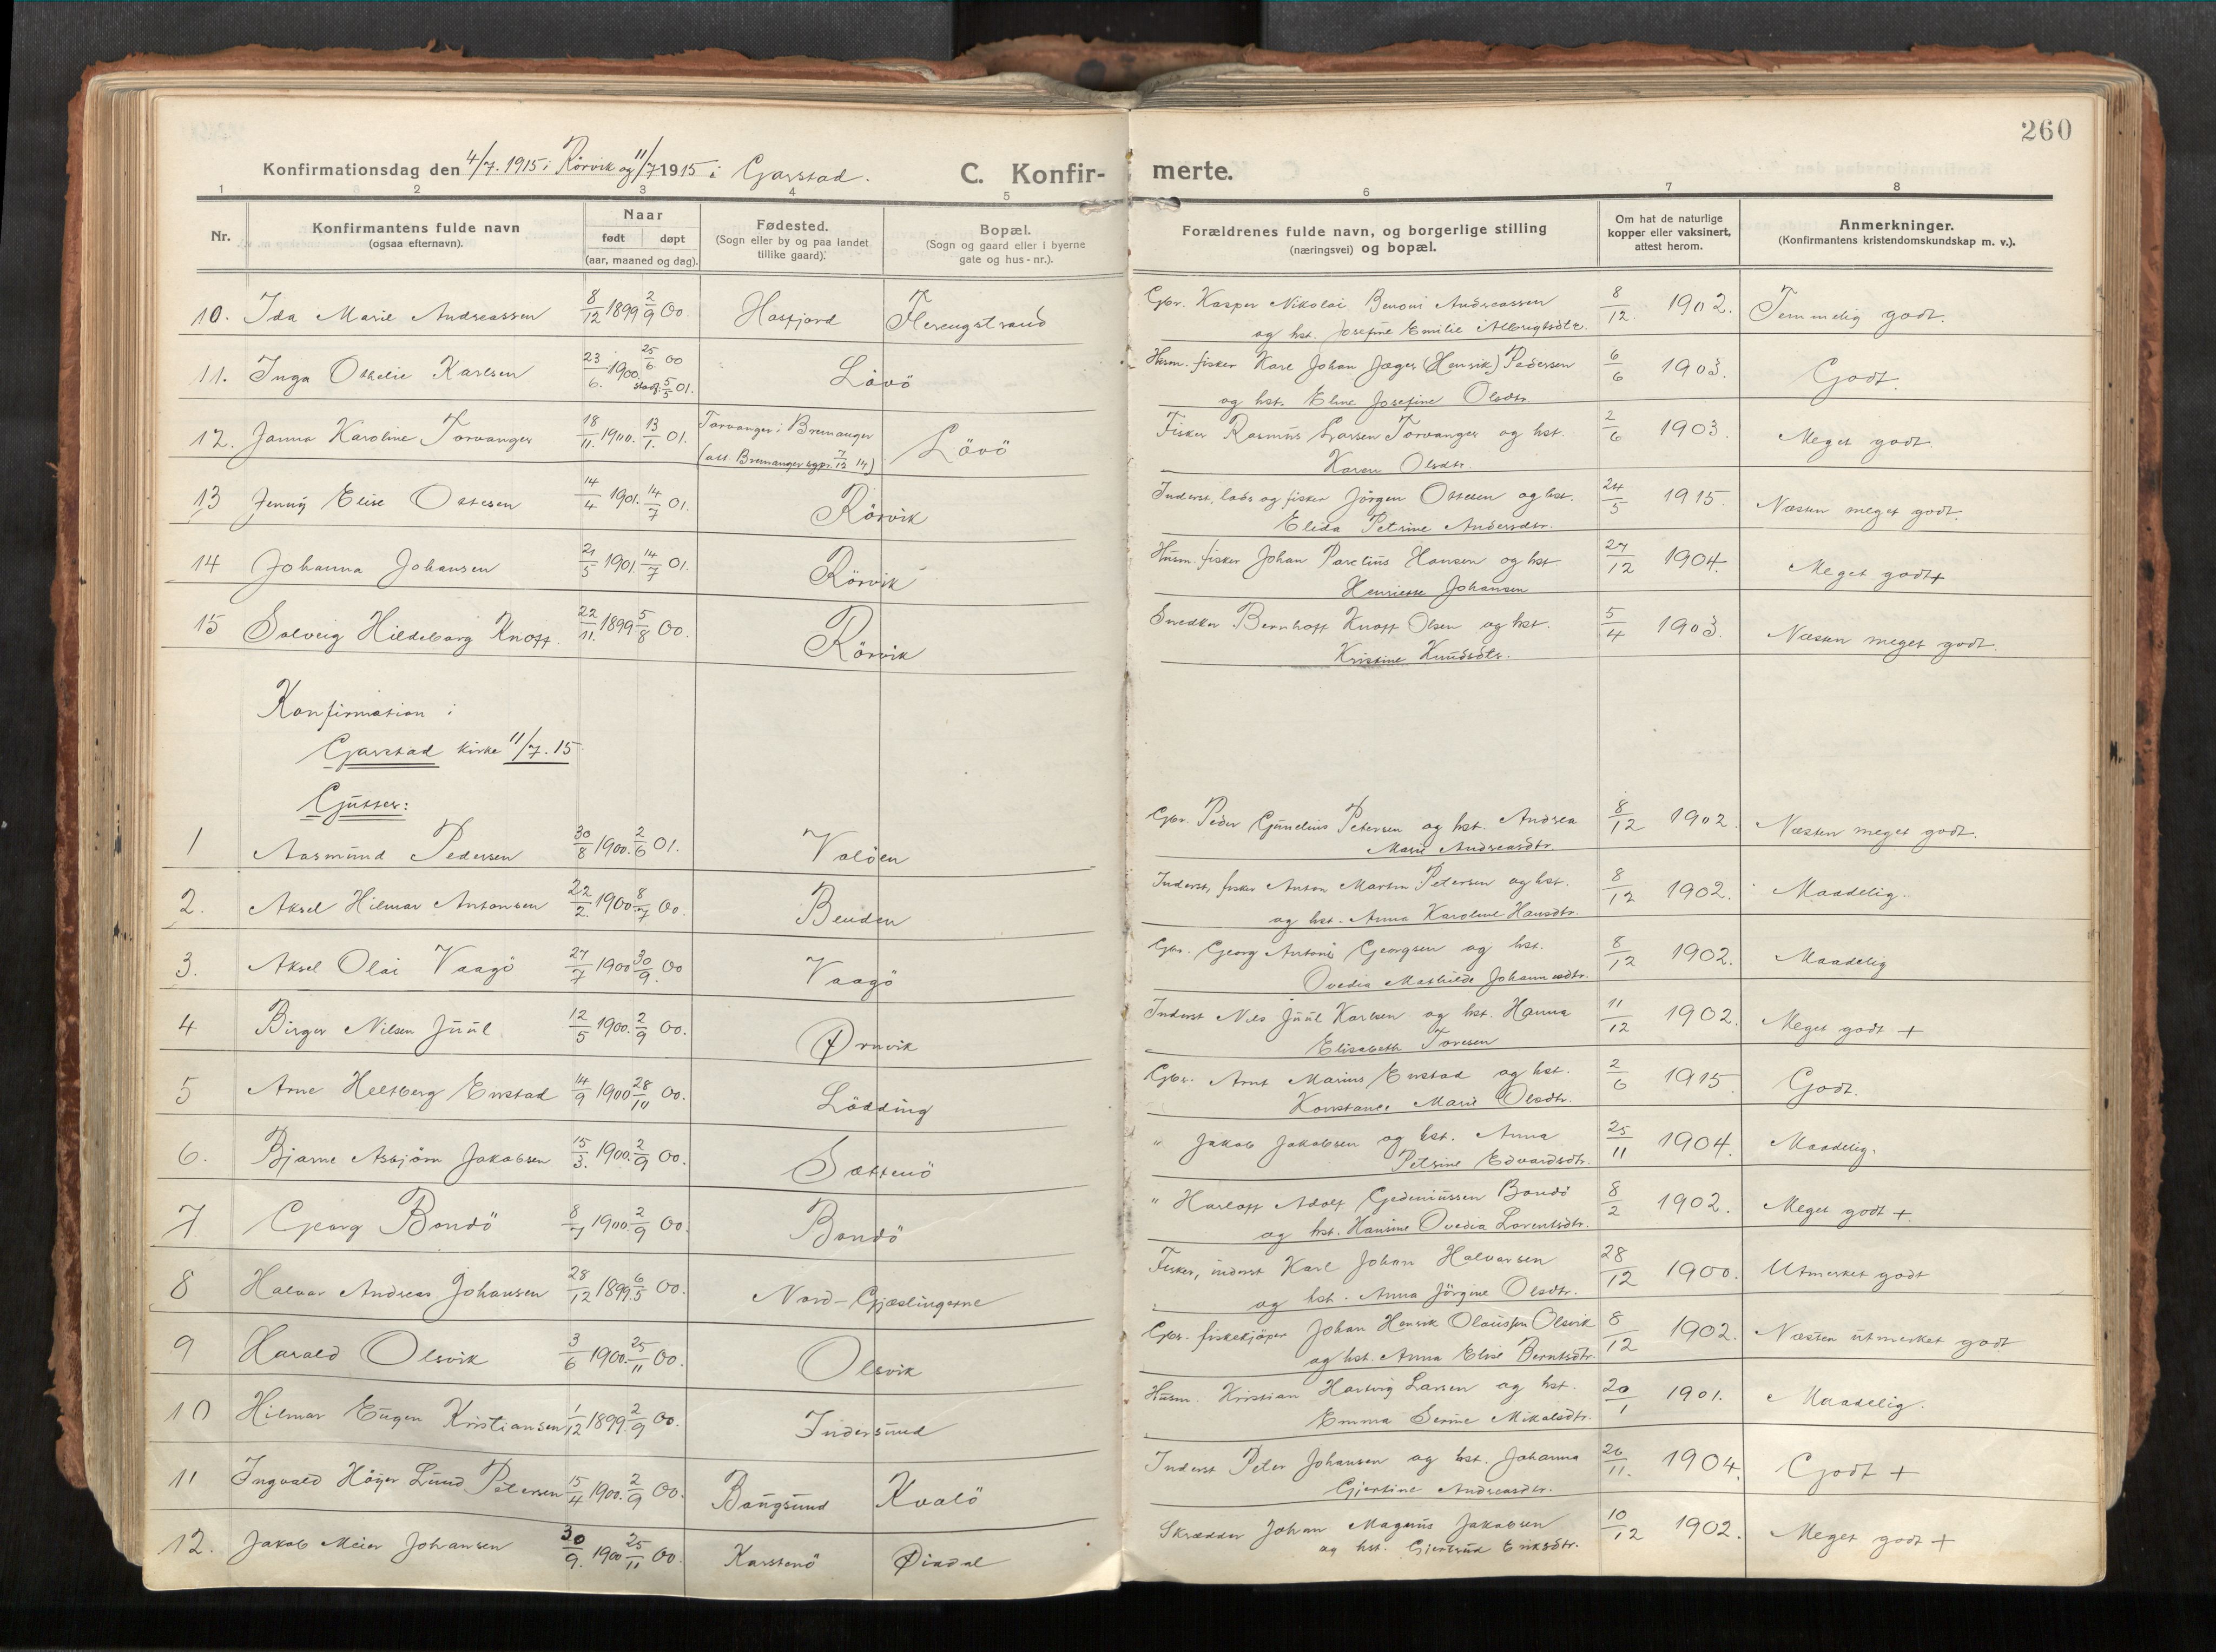 260
Konfirmationsdag den 4/7. 1915 i Rörvik og 11/7 1915 i Garstad.
C. Konfir- merte.
1 2 3 4 5 6 7 8
Nr.
Konfirmantens fulde navn
(ogsaa efternavn).
Naar
født døpt
(aar, maaned og dag).
Fødested.
(Sogn eller by og paa landet
tillike gaard).
Bopæl.
(Sogn og gaard eller i byerne
gate og hus-nr.).
Forældrenes fulde navn, og borgerlige stilling
(næringsvei) og bopæl.
Om hat de naturlige
kopper eller vaksinert,
attest herom.
Anmerkninger.
(Konfirmantens kristendomskundskap m. v.).
10. Ida Marie Andreassen 8/12 1899 2/9 00. Hasfjord Flerengstrand Gbr. Kasper Nikolai Benoni Andreassen 8/12. 1902. Temmelig godt.
og hst. Josefine Emilie Albrigtsdtr.
11. Inga Othelie Karlsen 23/6. 1900. 25/6. 00 stadf. 5/5 01. Lövö Husm. fisker Karl Johan Jæger (Henrik) Pedersen 6/6 1903. Godt.
og hst. Eline Josefine Olsdtr.
12. Janna Karoline Torvanger 18/11. 1900. 13/1. 01. Torvanger i Bremanger Lövö Fisker Rasmus Larsen Torvanger og hst. 2/6 1903. Meget godt.
(att. Bremanger sgpr. 7/12 14) Karen Olsdtr.
13 Jenny Elise Ottesen 14/4 1901. 14/7 01. Rörvik Inderst, lods og fisker Jörgen Ottesen og hst. 24/5 1915. Næsten meget godt.
Elida Petrine Andersdtr.
14 Johanna Johansen 21/5 1901. 14/7 01. Rörvik Husm. fisker Johan Parelius Hansen og hst 27/12 1904. Meget godt+
Henriette Johansen
15 Solveig Hildeborg Knoff. 22/11. 1899 5/8 00. Rörvik Snedker Bernhoff Knoff Olsen og hst. 5/4 1903. Næsten meget godt.
Kristine Knudsdtr.
Konfirmation i
Garstad kirke 11/7. 15.
Gutter:
1 Aasmund Pedersen 30/8 1900. 2/6 01. Valöen Gbr. Peder Gunelius Petersen og hst. Andrea 8/12 1902. Næsten meget godt.
Marie Andreasdtr.
2. Aksel Hilmar Antonsen 22/2. 1900. 8/7 00. Benden Inderst, fisker Anton Martin Petersen og hst. 8/12 1902. Maadelig.
og hst. Anna Karoline Hansdtr.
3. Aksel Olai Vaagö 27/7 1900 30/9. 00 Vaagö Gbr. Georg Antoni Georgsen og hst. 8/12 1902. Maadelig
Ovedia Mathilde Johannesdtr.
4 Birger Nilsen Juul 12/5 1900. 2/9 00. Ørnvik Inderst Nils Juul Karlsen og hst. Hanna 11/12 1902. Meget godt +
Elisabeth Toresen
5 Arne Heltberg Enstad 14/9 1900 28/10 00. Lödding Gbr. Arnt Marius Enstad og hst. 2/6 1915 Godt.
Konstance Marie Olsdtr.
6. Bjarne Asbjörn Jakobsen 15/3. 1900. 2/9 00. Sættenö " Jakob Jakobsen og hst. Anna 25/11 1904. Maadelig.
Petrine Edvardsdtr.
7 Georg Bondö 8/7 1900. 2/9 00. Bondö " Harloff Adolf Gedeniussen Bondö 8/2 1902. Meget godt +
og hst. Hansine Ovedia Lorentsdtr.
8 Halvar Andreas Johansen 28/12 1899. 6/5 00. Nord-Gjæslingerne Fisker, inderst Karl Johan Halvarsen 28/12 1900. Utmerket godt
og hst. Anna Jörgine Olsdtr.
9 Harald Olsvik 3/6 1900. 25/11 00. Olsvik Gbr. fiskekjöper Johan Henrik Olaussen Olsvik 8/12 1902. Næsten utmerket godt
og hst. Anna Elise Berntsdtr.
10 Hilmar Eugen Kristiansen 1/12 1899. 2/9 00. Indersund Husm. Kristian Hartvig Larsen og hst. 20/1 1901. Maadelig.
Emma Serine Mikalsdtr.
11 Ingvald Höyer Lund Petersen 15/4 1900. 2/9 00. Bangsund Kvalö Inderst Peter Johansen og hst. Johanna 26/11. 1904. Godt +
Gjertine Andreasdtr.
12. Jakob Meier Johansen 30/9. 1900 25/11 00. Karstenö Øiadal Skrædder Johan Magnus Jakobsen 10/12 1902. Meget godt +
og hst. Gjertrud Eriksdtr.